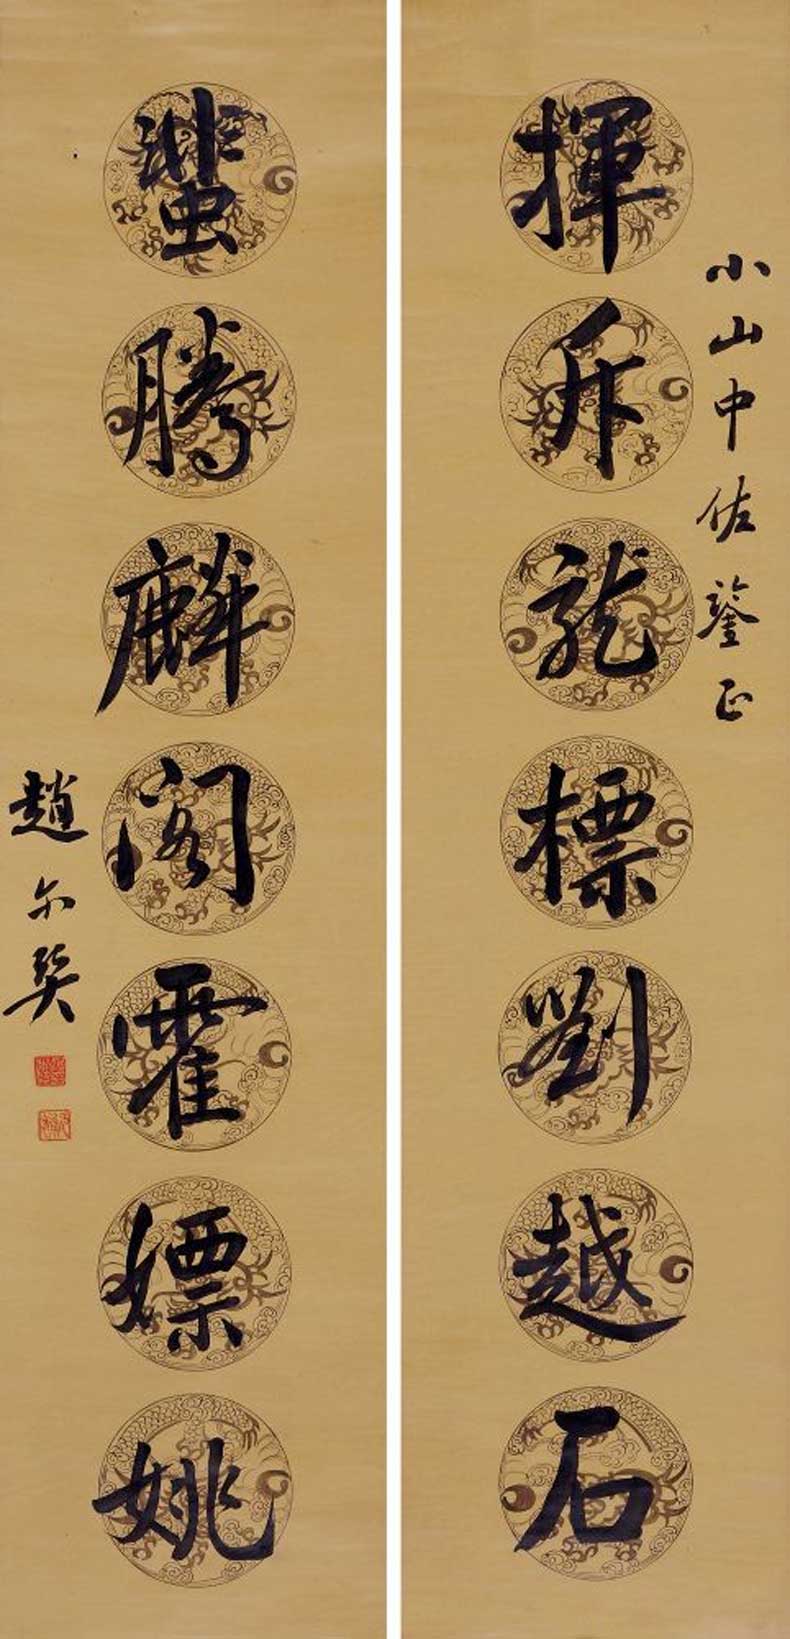 小山中佐鑒正
揮斥龍標劉越石
蜚騰麟閣霍嫖姚
趙尔巽